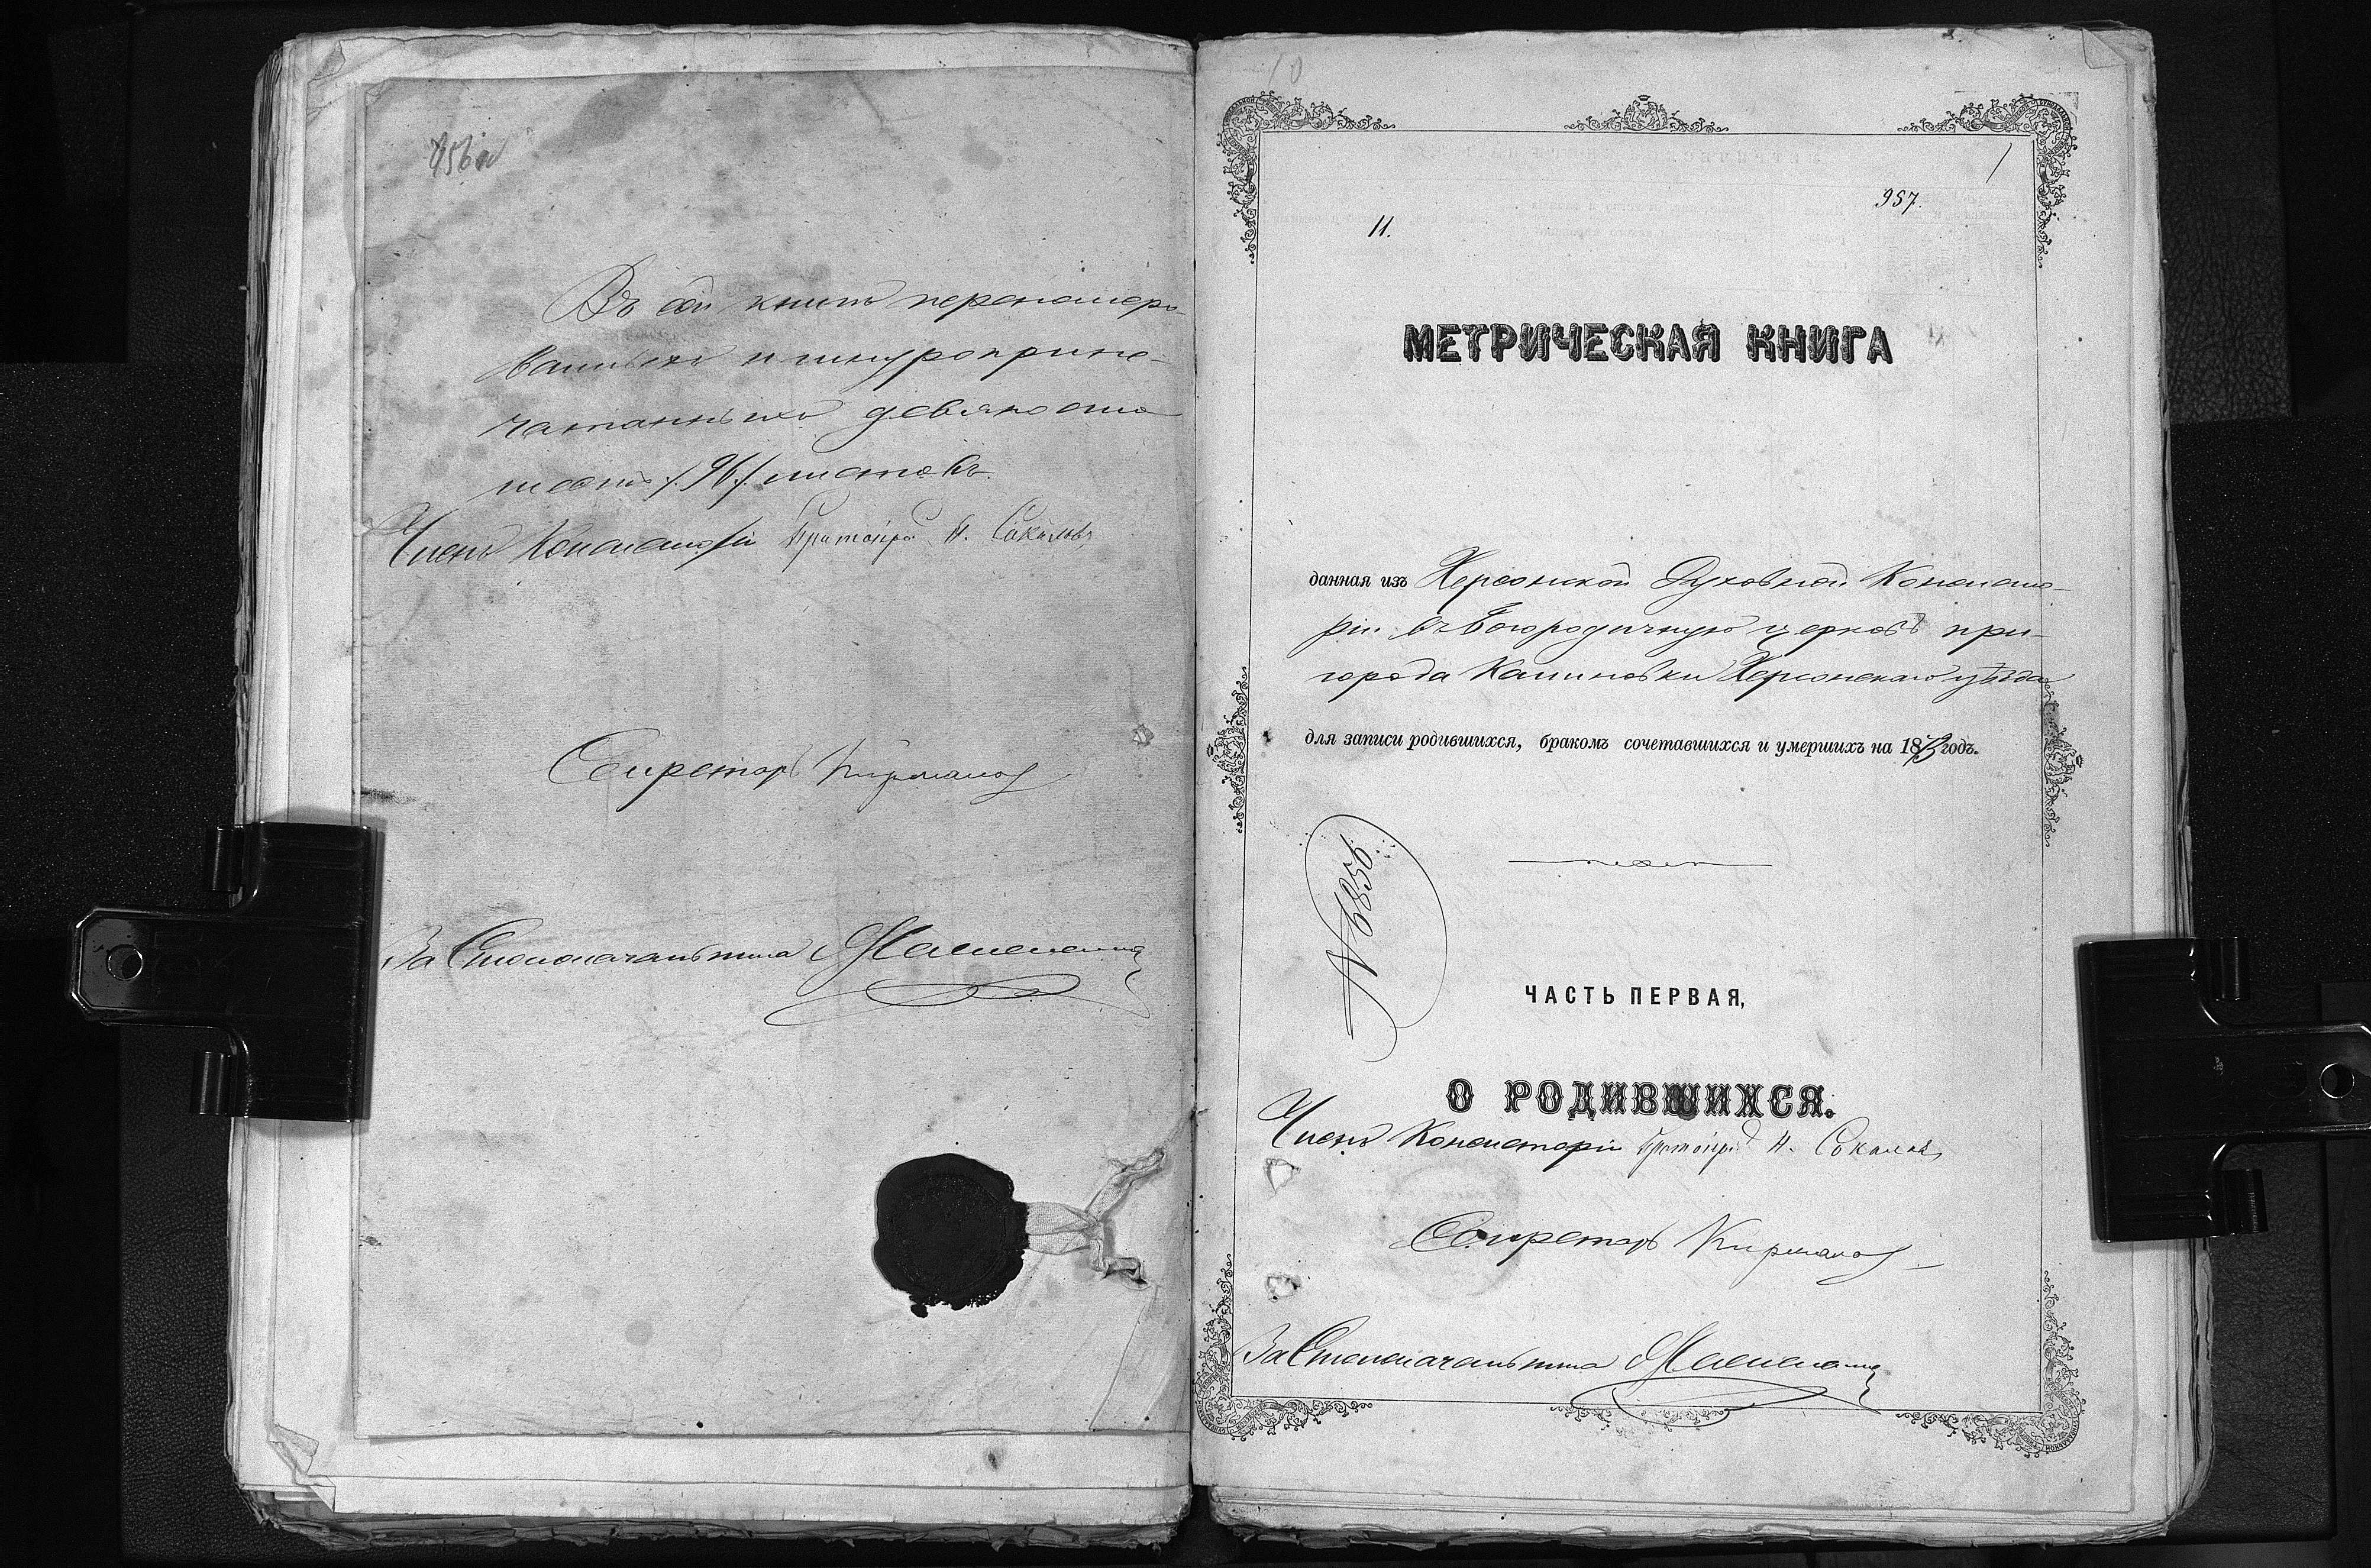 956 об
Въ сей книгѣ перенумеро-
ванныхъ и шнуроприпе-
чатанныхъ девяносто
шесть /. 96 /. листовъ.
Членъ Консисторіи Протоіерей Н. Соколовъ
Секретарь
За Столоначальника
10
1
957.
11.
МЕТРИЧЕСКАЯ КНИГА
данная изъ Херсонской Духовной Консисто-
ріи въ Богородичную церковь при-
города Калиновки Херсонскаго уѣзда
для записи родившихся, бракомъ сочетавшихся и умершихъ на 1873 годъ.
№ 6856
ЧАСТЬ ПЕРВАЯ,
О РОДИВШИХСЯ.
Членъ Консисторіи Протоіерей Н. Соколовъ
Секретарь
За Столоначальника